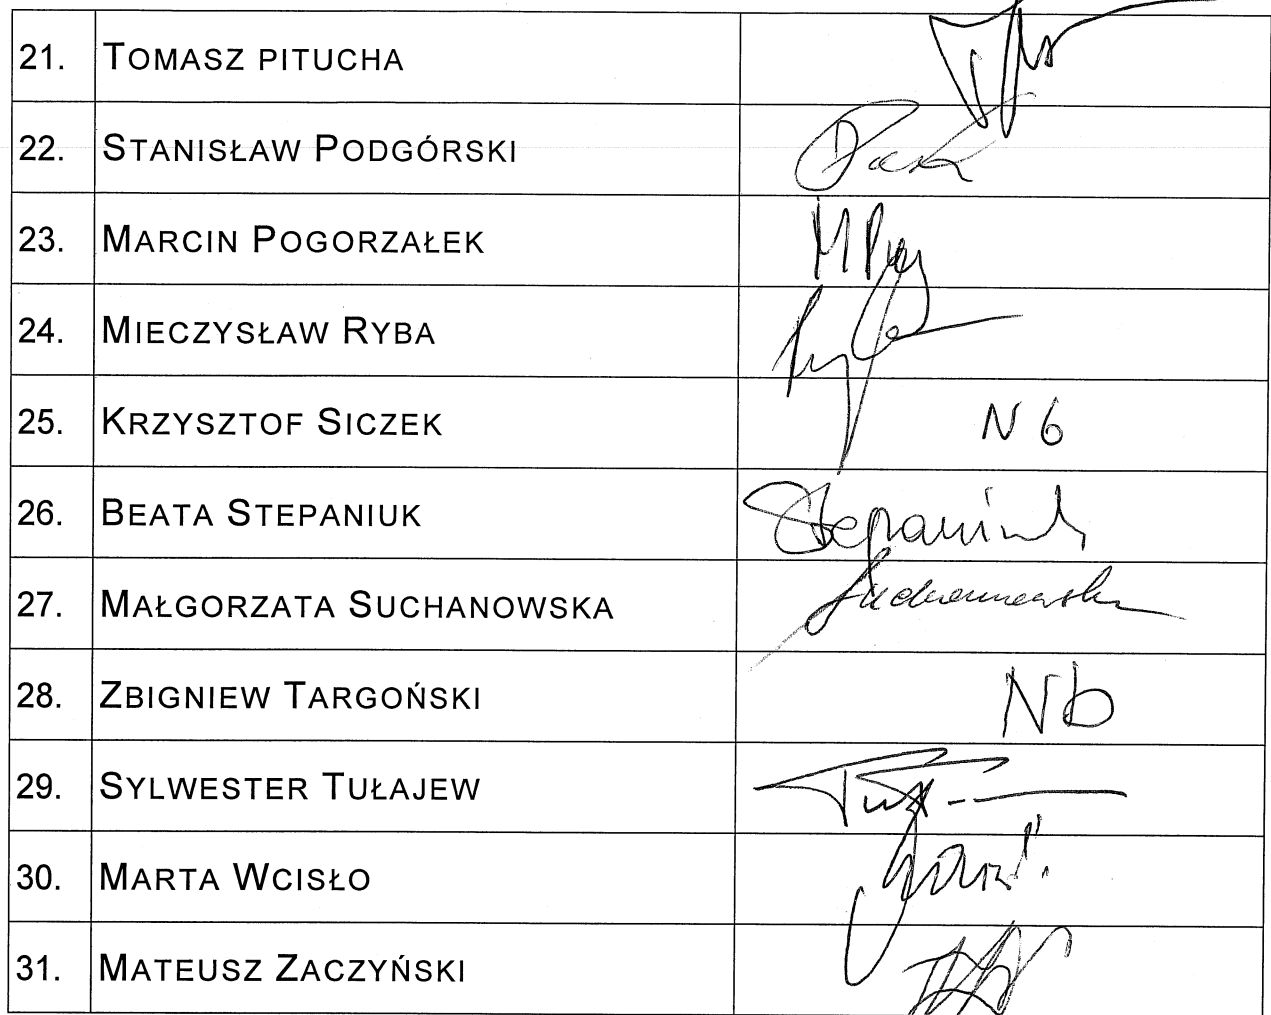 21. TOMASZ PITUCHA
22. STANISŁAW PODGÓRSKI
23. MARCIN POGORZAŁEK MP
24. MIECZYSŁAW RYBA
25. KRZYSZTOF SICZEK Nb
26. BEATA STEPANIUK Stepaniuk
27. MAŁGORZATA SUCHANOWSKA Suchanowska
28. ZBIGNIEW TARGOŃSKI Nb
29. SYLWESTER TUŁAJEW
30. MARTA WCISŁO
31. MATEUSZ ZACZYŃSKI